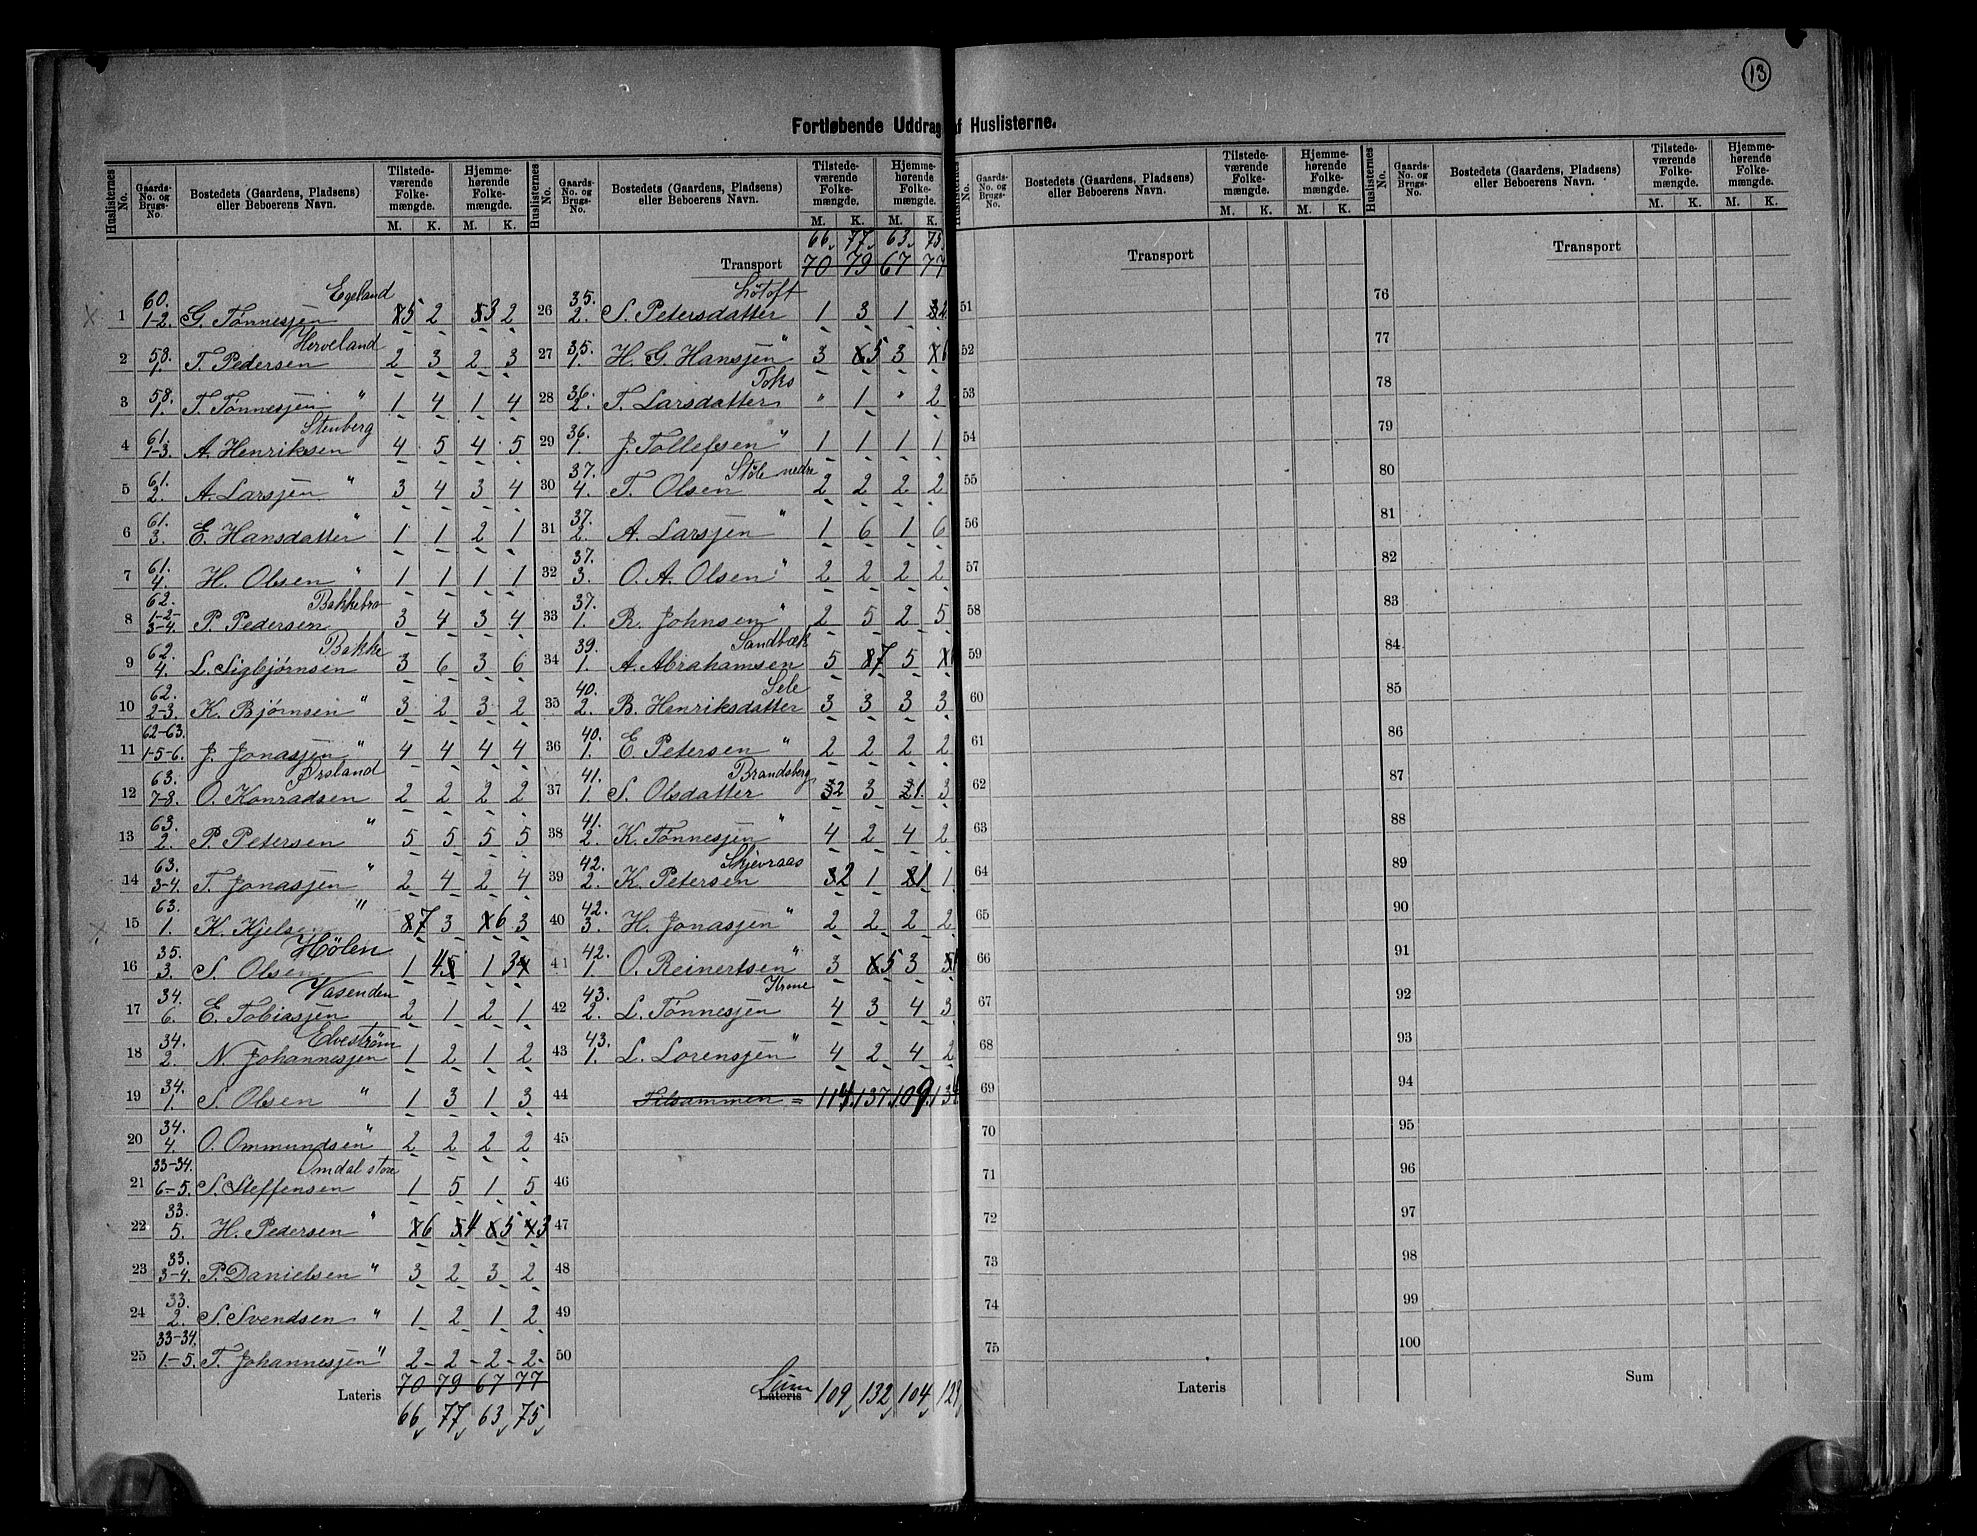 13
Fortløbende Uddrag af Huslisterne.
Huslisternes No. | Gaards-No. og Brugs-No. | Bostedets (Gaardens, Pladsens) eller Beboerens Navn. | Tilstedeværende Folkemængde. M. K. | Hjemmehørende Folkemængde. M. K.
1 60. 1-2. G. Tønnesjen Egeland 5 2 3 2
2 58. 1. T. Pedersen Herveland 2 3 2 3
3 58. 1. T. Tønnesjen " 1 4 1 4
4 61. 1-3. A. Henriksen Stenberg 4 5 4 5
5 61. 2. A. Larsjen " 3 4 3 4
6 61. 3. E. Hansdatter " 1 1 2 1
7 61. 4. H. Olsen " 1 1 1 1
8 62. 1-2-3-4. P. Pedersen Bakkebro 3 4 3 4
9 62. 4. L. Sigbjørnsen Bakke 3 6 3 6
10 62. 2-3. K. Bjørnsen " 3 2 3 2
11 62-63. 1-5-6. J. Jonasjen " 4 4 4 4
12 63. 7-8. O. Konradsen Ørsland 2 2 2 2
13 63. 2. P. Petersen " 5 5 5 5
14 63. 3-4. T. Jonasjen " 2 4 2 4
15 63. 1. K. Kjelsen " 7 3 6 3
16 35. 3. S. Olsen Hølen 1 4 1 3
17 34. 6. E. Tobiasjen Vasenden 2 1 2 1
18 34. 2. N. Johannesjen Elvestrøm 1 2 1 2
19 34. 1. S. Olsen " 1 3 1 3
20 34. 4. O. Ommundsen " 2 2 2 2
21 33-34. 6-5. S. Steffensen Omdal store 1 5 1 5
22 33. 5. H. Pedersen " 6 4 5 3
23 33. 3-4. P. Danielsen " 3 2 3 2
24 33. 2. S. Svendsen " 1 2 1 2
25 33-34. 1-5. T. Johannesjen " 2 2 2 2
Lateris 70 79 67 77
66 77 63 75
Huslisternes No. | Gaards-No. og Brugs-No. | Bostedets (Gaardens, Pladsens) eller Beboerens Navn. | Tilstedeværende Folkemængde. M. K. | Hjemmehørende Folkemængde. M. K.
66 77 63 75
Transport 70 79 67 77
26 35. 2. S. Petersdatter Løtoft 1 3 1
27 35. 1. H. G. Hansjen " 3 5 3 6
28 36. 2. T. Larsdatter Foks " 1 " 2
29 36. 1. J. Tollefsen " 1 1 1 1
30 37. 4. T. Olsen Støle nedre 2 2 2 2
31 37. 2. A. Larsjen " 1 6 1 6
32 37. 3. O. A. Olsen " 2 2 2 2
33 37. 1. R. Johnsen " 2 5 2 5
34 39. 1. A. Abrahamsen Sandbæk 5 7 5
35 40. 2. B. Henriksdatter Sele 3 3 3 3
36 40. 1. E. Petersen " 2 2 2 2
37 41. 1. S. Olsdatter Brandsberg 2 3 1 3
38 41. 2. K. Tønnesjen " 4 2 4 2
39 42. 2. K. Petersen Skjevraas 2 1 1 1
40 42. 3. H. Jonasjen " 2 2 2 2
41 42. 1. O. Reinertsen " 3 5 3
42 43. 2. L. Tønnesjen Krone 4 3 4 3
43 43. 1. L. Lorensjen " 4 2 4 2
44 Tilsammen = 114. 137. 109.
45
46
47
48
49
50
Sum Lateris 109 132 104
Huslisternes No. | Gaards-No. og Brugs-No. | Bostedets (Gaardens, Pladsens) eller Beboerens Navn. | Tilstedeværende Folkemængde. M. K. | Hjemmehørende Folkemængde. M. K.
Transport
51
52
53
54
55
56
57
58
59
60
61
62
63
64
65
66
67
68
69
70
71
72
73
74
75
Lateris
Huslisternes No. | Gaards-No. og Brugs-No. | Bostedets (Gaardens, Pladsens) eller Beboerens Navn. | Tilstedeværende Folkemængde. M. K. | Hjemmehørende Folkemængde. M. K.
Transport
76
77
78
79
80
81
82
83
84
85
86
87
88
89
90
91
92
93
94
95
96
97
98
99
100
Sum